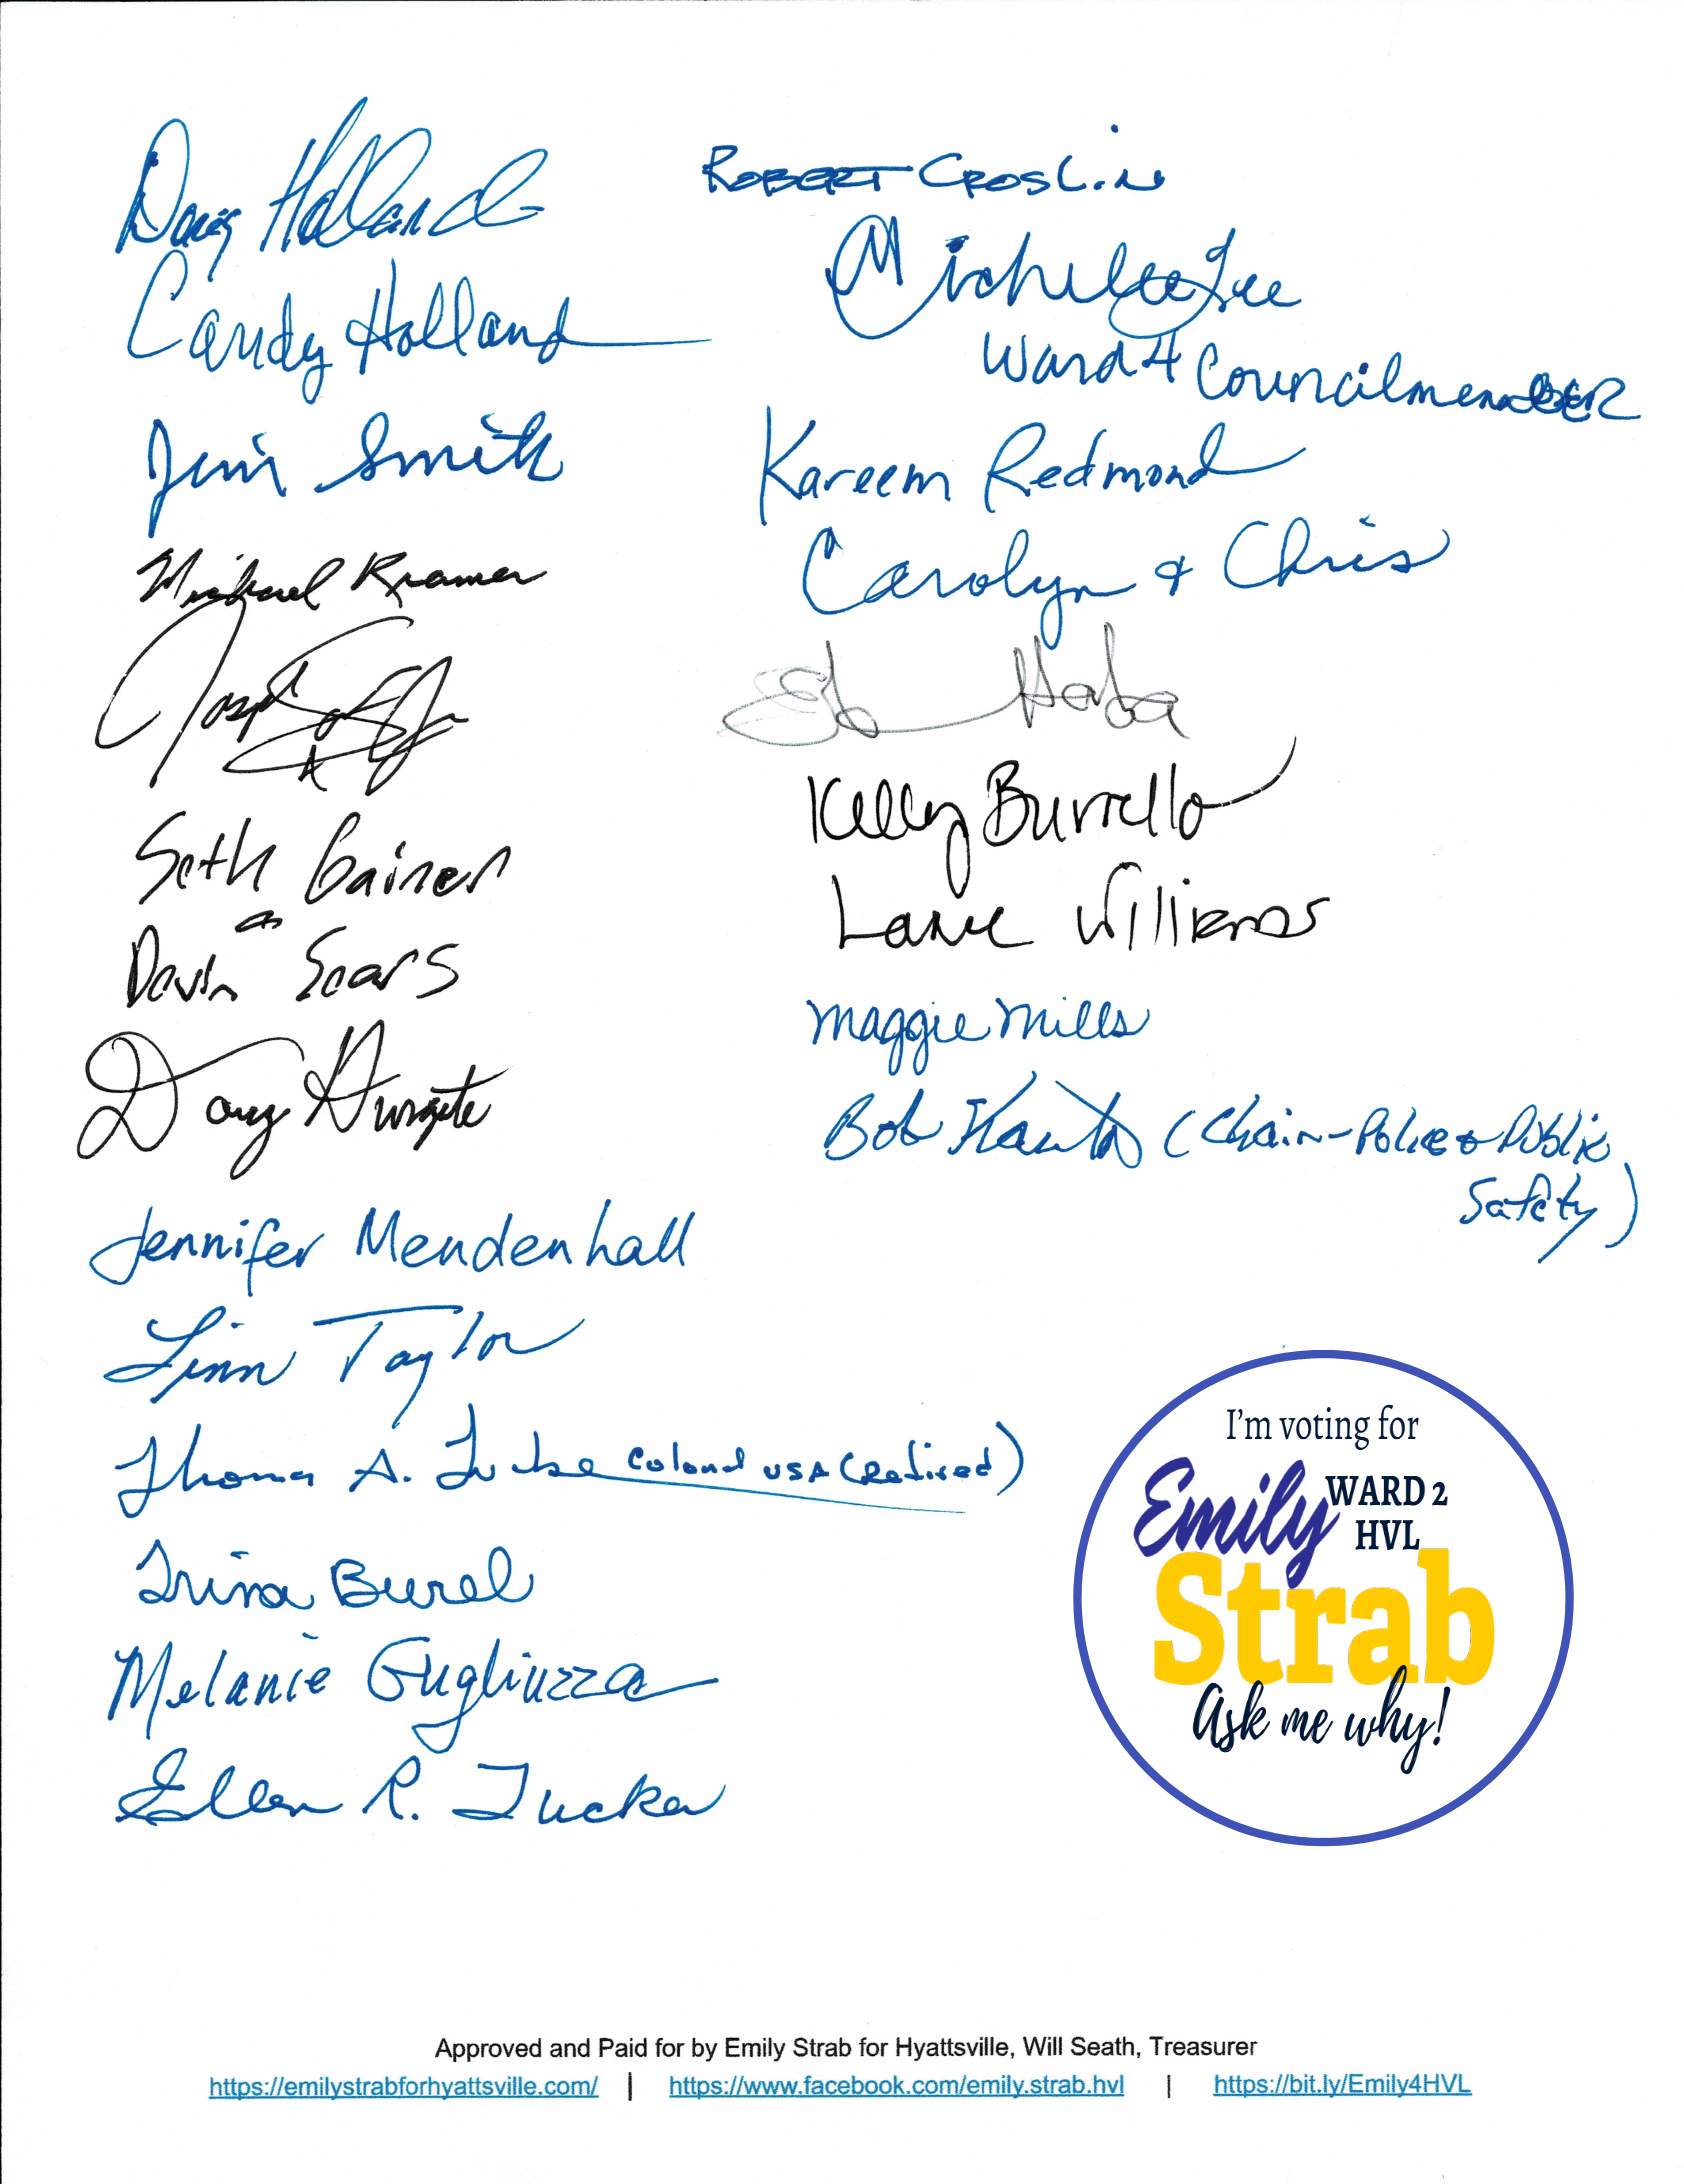 Doug Holland
Candy Holland
Jim Smith
Michael Kramer
Joseph
Seth Gainer
Devin Sears
Doug
Jennifer Mendenhall
Linn Taylor
Thomas A. Colonel USA (Retired)
Trina Burel
Melanie Gugliuzza
Ellen R. Tucker
ROBERT CROSLIN
Michelle Lee
Ward 4 Councilmember
Kareem Redmond
Carolyn & Chris
Kelly Burrello
Williams
Maggie Mills
Bob (Chair-Police & Public
Safety)
I'm voting for
Emily WARD 2
HVL
Strab
Ask me why!
Approved and Paid for by Emily Strab for Hyattsville, Will Seath, Treasurer
https://emilystrabforhyattsville.com/ | https://www.facebook.com/emily.strab.hvl | https://bit.ly/Emily4HVL